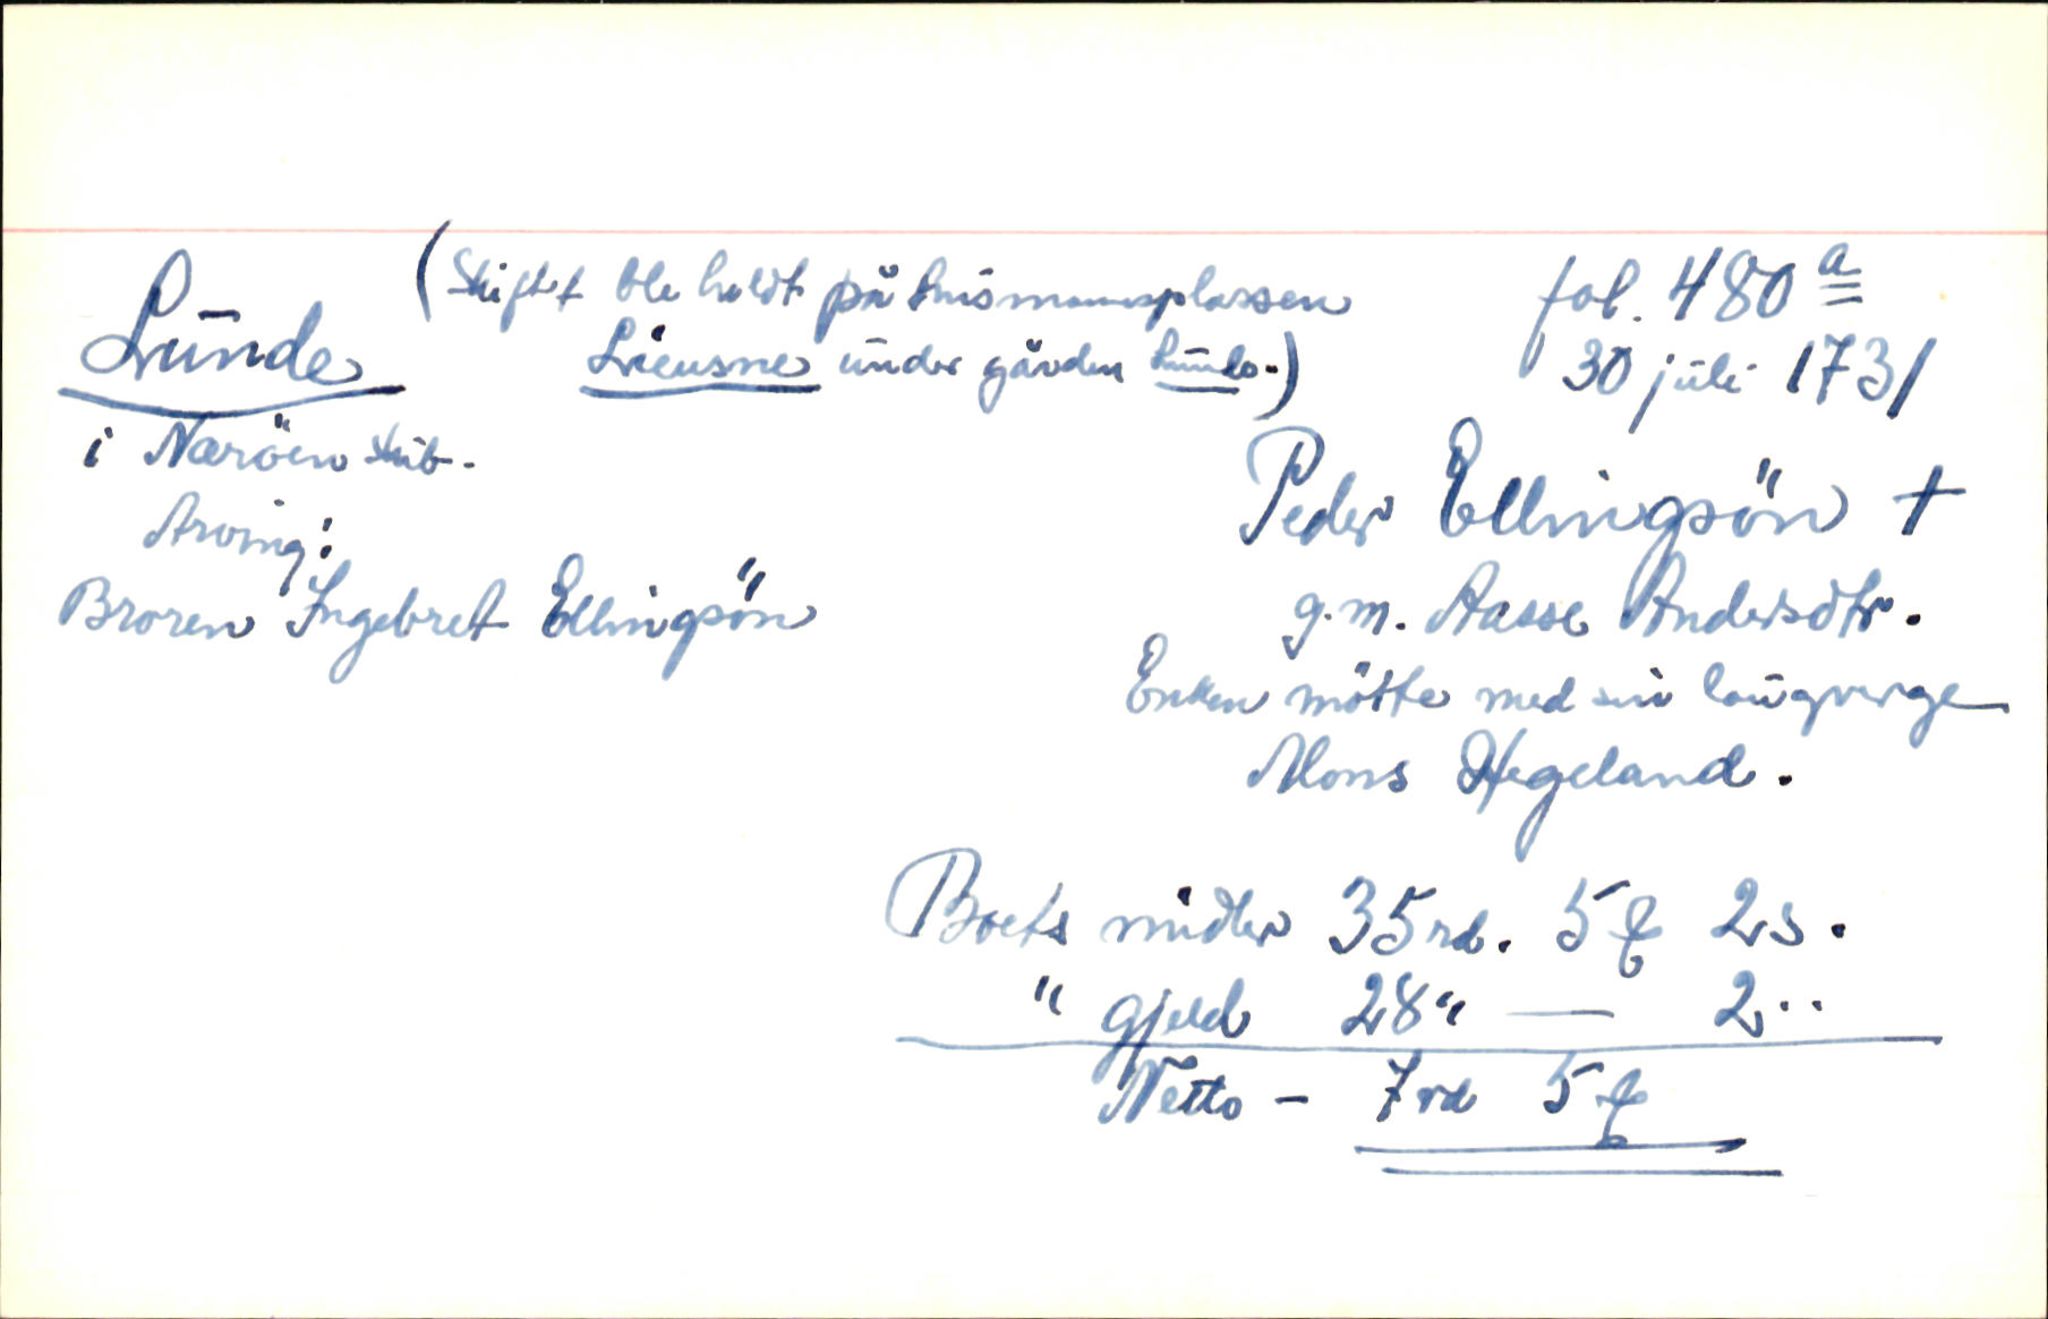 Lunde
(Skiftet ble holdt på husmannsplassen
Lieusne under gården Lunde.)
fol. 480 a
30 juli 1731
i Næröen skib.
Arving:
Broren Ingebret Ellingsön
Peder Ellingsön †
g.m. Aasse Andersdtr.
Enken mötte med sin laugverge
Mons Hegeland.
Boets midler 35 rd. 5 2 s.
" gjeld 28 " — 2 ..
Netto - 7 rd 5